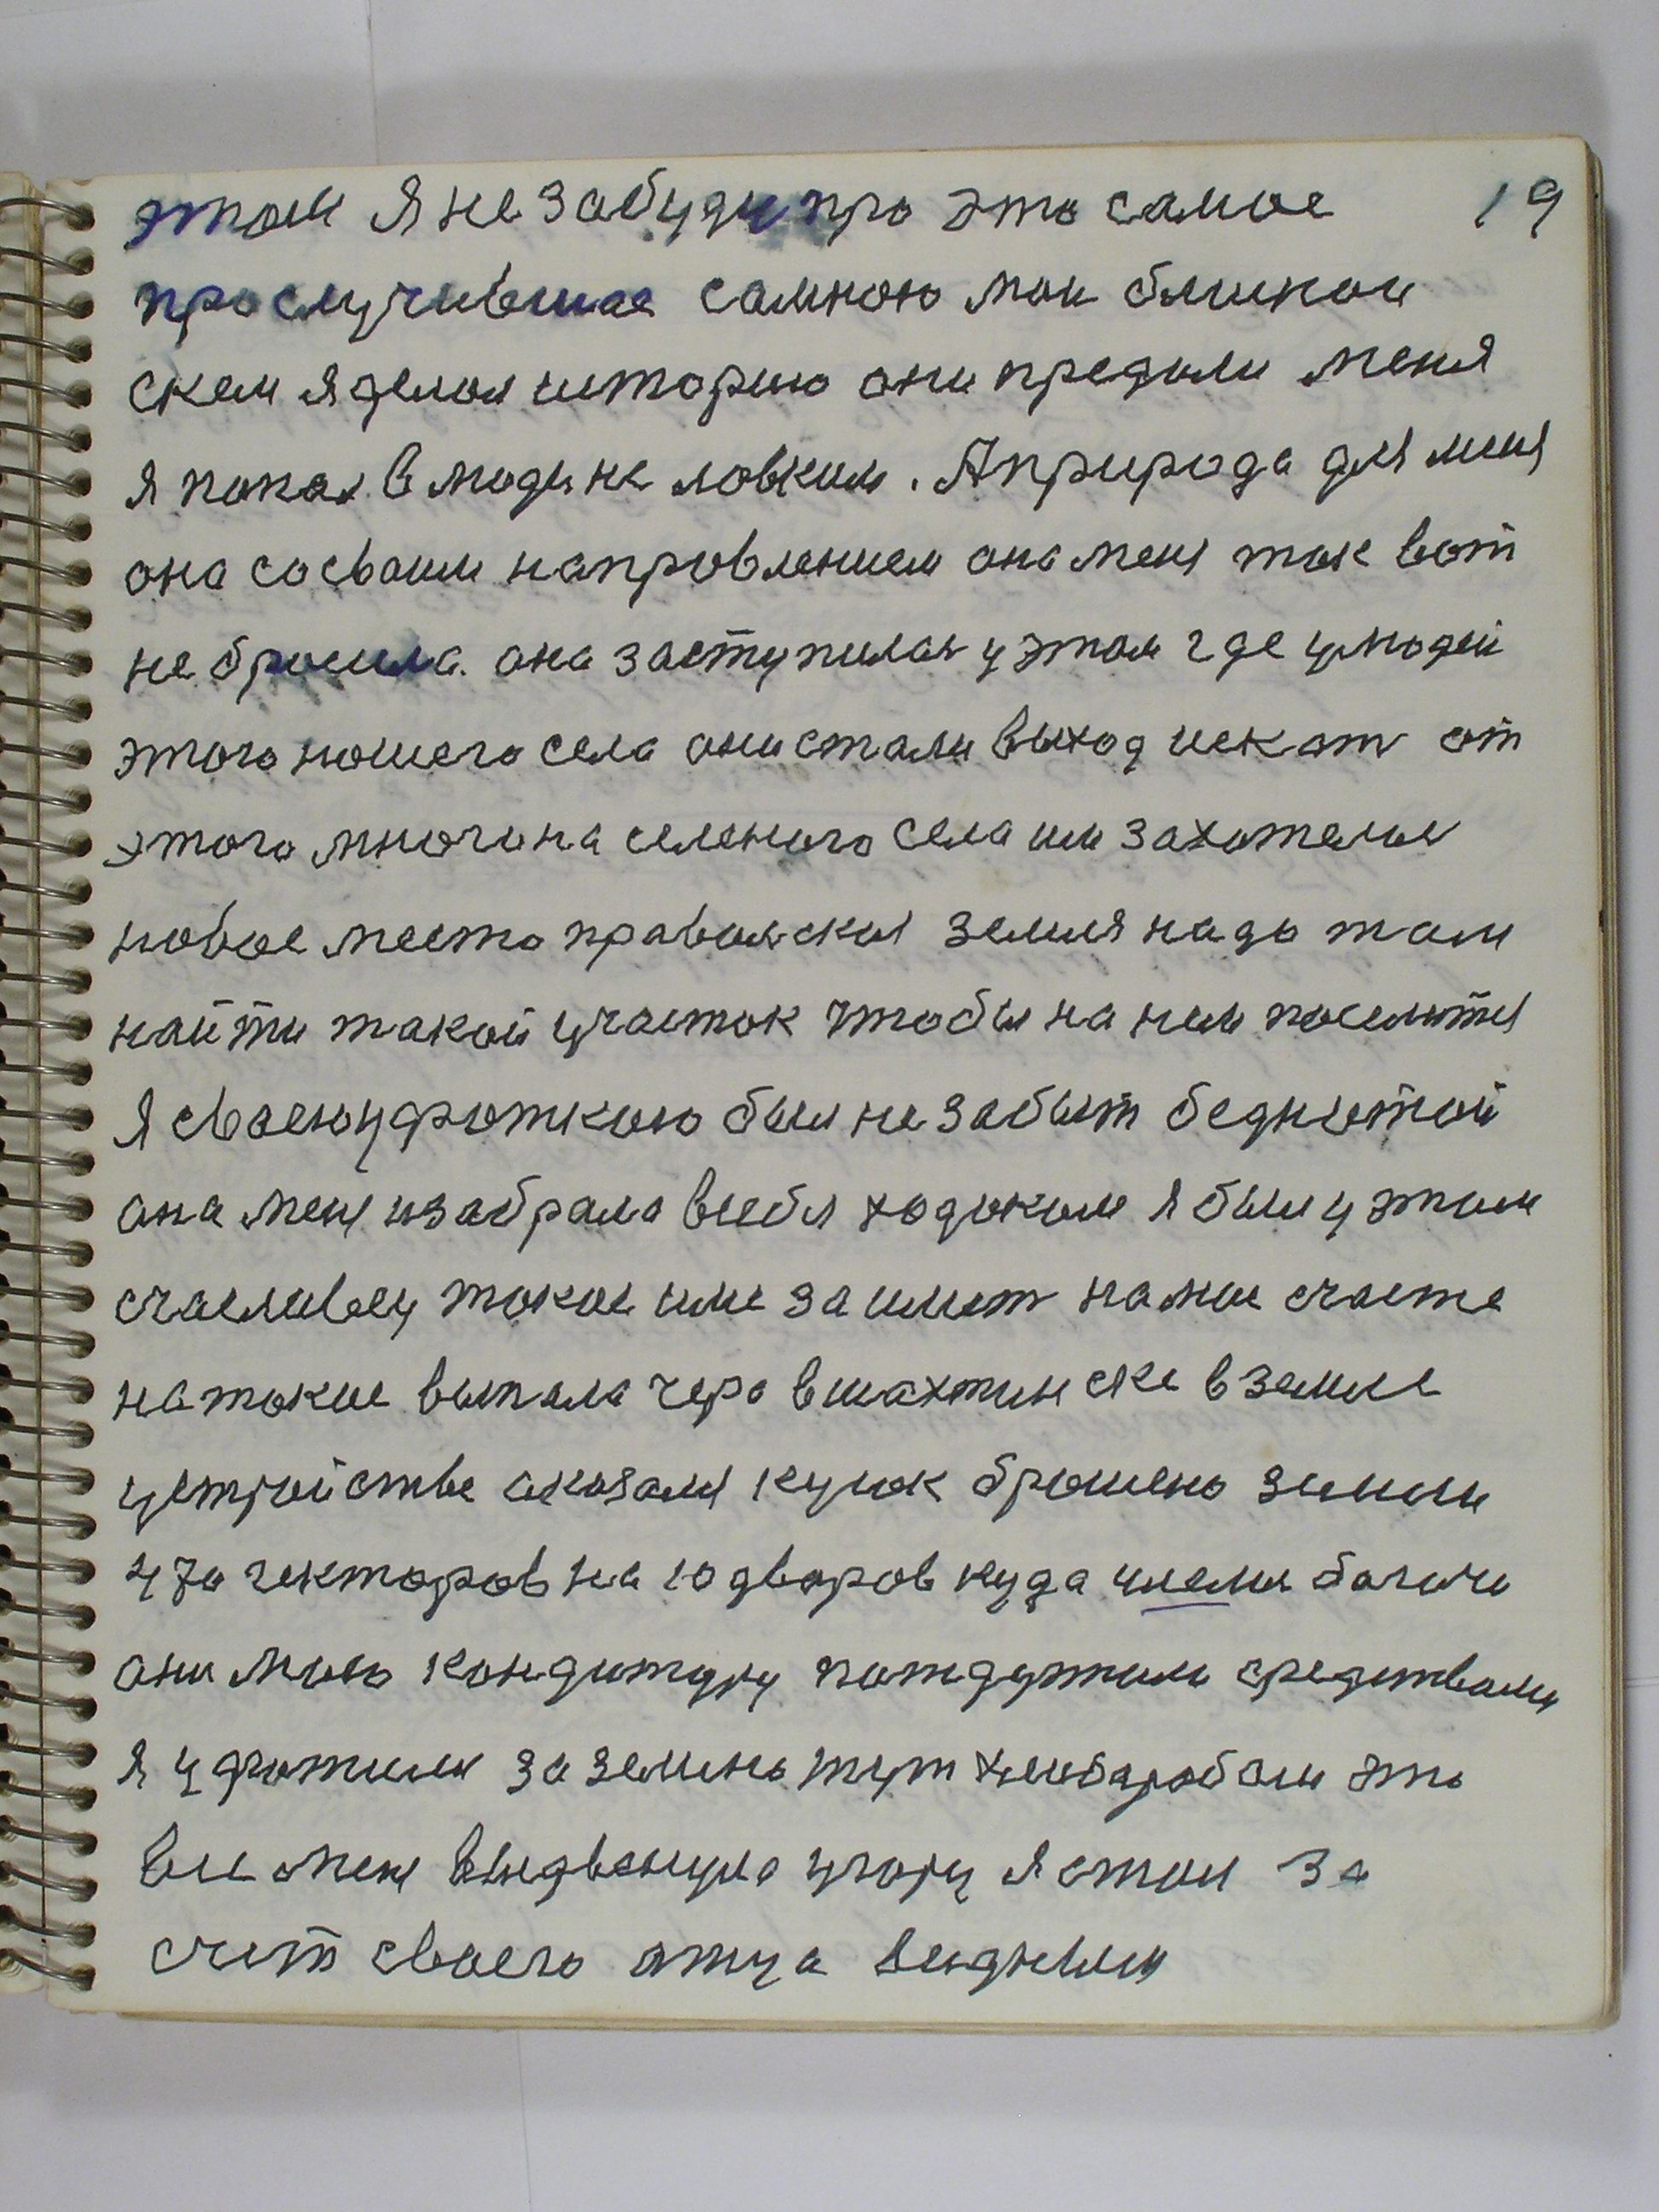 этом Я не забуду про это самое 19
прослучившае самною мои близкои
скем я делал историю они предали меня
я попал в люди не ловким. А природа для меня
она со сваим направлением она меня так вот
не бросила. она заступилась у этом где у людей
этого нашего села они стали выход искать от
этого многина селеного села им захотелось
новое место правальская земля надо там
найти такой участок чтобы на нем поселится
Я сваею уфоткаю был не забыт беднотой
она меня изабрала всебя ходоком я был у этом
счасливец такое име за имет на мое счасте
на токое выпала черо вшахтинске в земле
устройстве оказался кусок брошено земли
470 гекторов на 10 дворов куда имели богачи
они мою кондитуру потдутили средствами
я уфотился за землю тут хлебаробом это
все меня выдвенуло угору я стал за
счет сваего атца видным